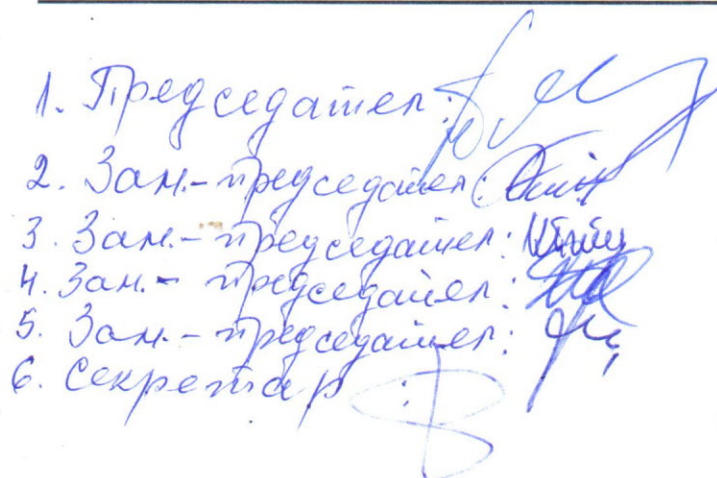 1. Председател:
2. Зам.-председател:
3. Зам.-председател:
4. Зам.- председател:
5. Зам.-председател:
6. Секретар :